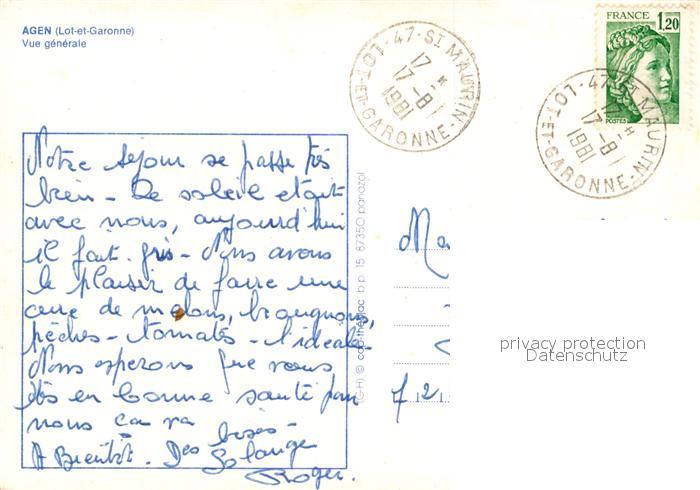 AGEN (Lot-et-Garonne)
Vue générale
FRANCE 1,20
POSTES
47-ST MAURIN
LOT-ET-GARONNE
17 H
17-8
1981
47-ST MAURIN
LOT-ET-GARONNE
17 H
17-8
1981
Notre séjour se passe très
bien - Le soleil était
avec nous, aujourd'hui
il fait gris - Nous avons
le plaisir de faire une
cure de melons, brugnons,
pêches - tomates - l'idéale -
Nous esperons que vous
êtes en bonne santé pour
nous ça va
A Bientôt. Des bises -
Solange
Roger.
(G-H) © cap-théojac b.p. 15 87350 panazol
Ma
72
privacy protection
Datenschutz